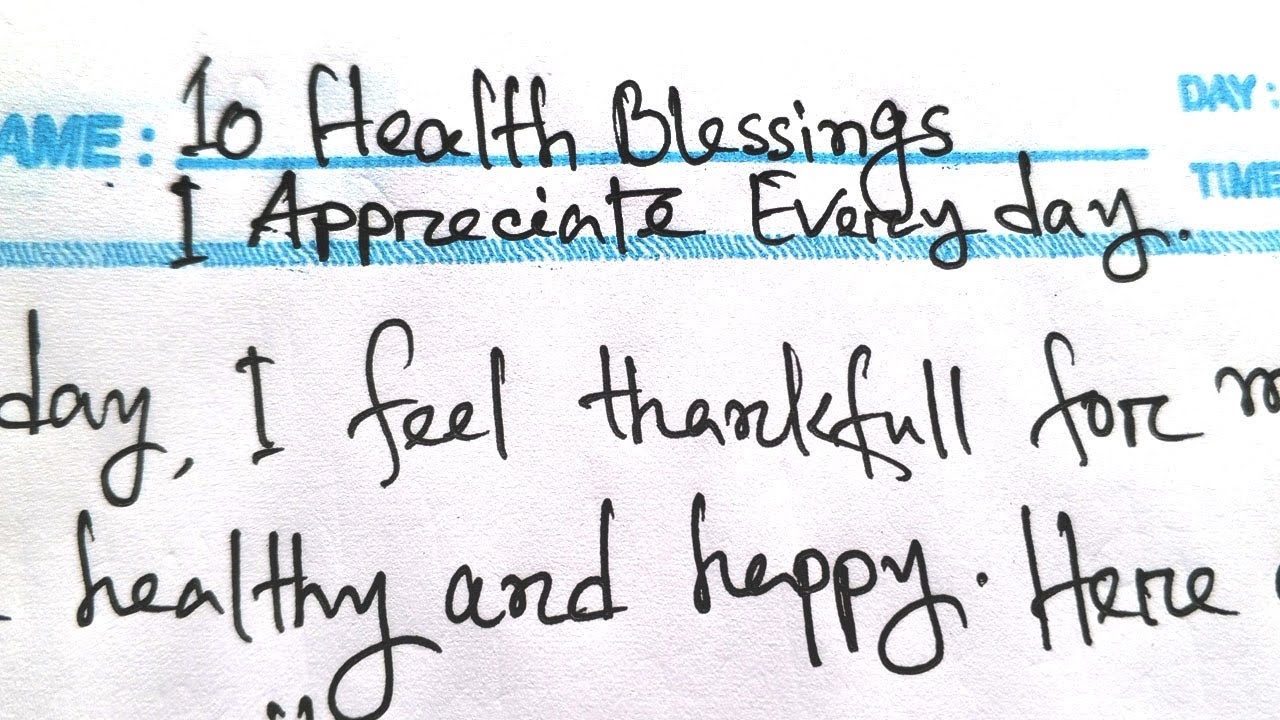 AME: 10 Health Blessings DAY:
I Appreciate Every day. TIME
day, I feel thankfull for m
healthy and happy. Here